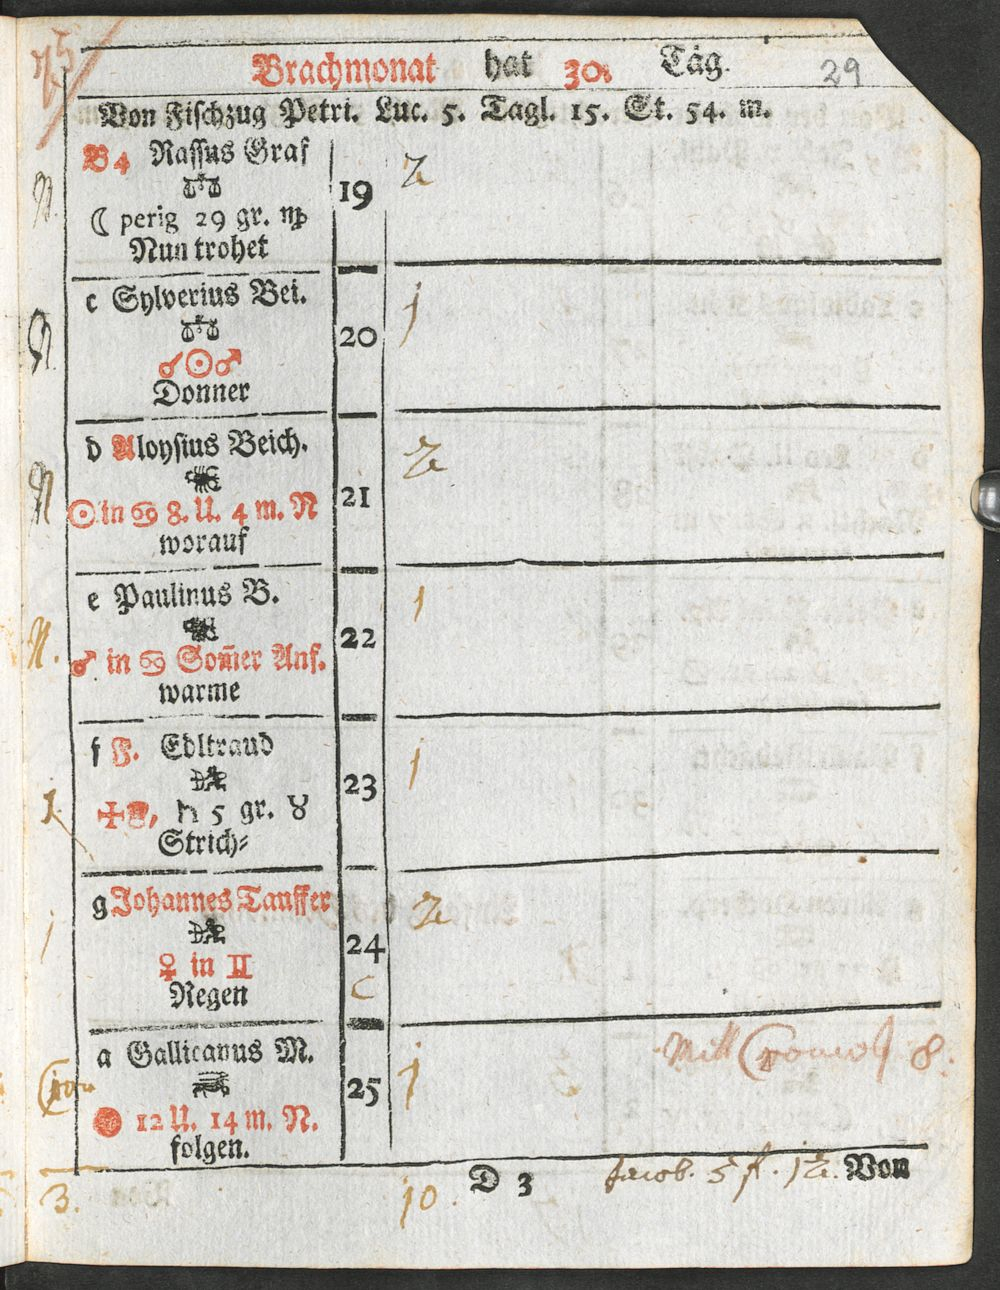 Brachmonat hat 30. Täg. 29
Von Fischzug Petri. Luc. 5. Tagl. 15. St. 54. m.
B 4 Nassus Graf
♎
☾ perig 29 gr. ♍
Nun trohet
19
2
N.
c Sylverius Bei.
♎
☌☉♂
Donner
20
1
N.
d Aloysius Beich.
♏
☉ in ♋ 8. U. 4 m. N
worauf
21
2
N
e Paulinus B.
♏
♂ in ♋ Som̅er Anf.
warme
22
1
N.
f F. Edltraud
♐
♄ 5 gr. ♉
Strich⸗
23
1
1.
g Johannes Tauffer
♐
♀ in II
Regen
24
C
2
1
a Gallicanus M.
♑
12 U. 14 m. N.
folgen.
25
1
Mitt 8.
Jacob. 5 f. 12.
3.
10.
D 3
Von